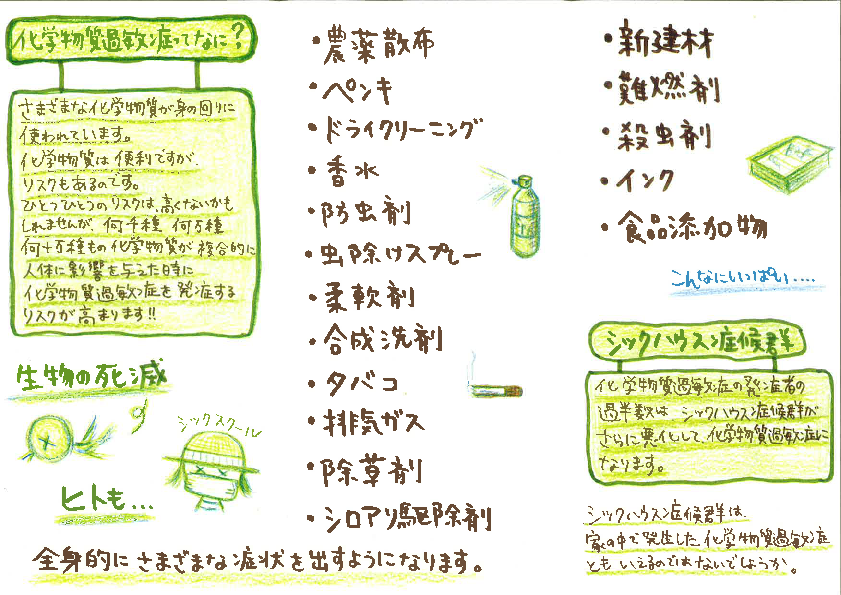 化学物質過敏症ってなに?
さまざまな化学物質が身の回りに
使われています。
化学物質は便利ですが、
リスクもあるのです。
ひとつひとつのリスクは、高くないかも
しれませんが、何千種 何万種
何十万種もの化学物質が複合的に
人体に影響を与えた時に
化学物質過敏症を発症する
リスクが高まります!!
生物の死滅
シックスクール
ヒトも...
全身的にさまざまな症状を出すようになります。
・農薬散布
・ペンキ
・ドライクリーニング
・香水
・防虫剤
・虫除けスプレー
・柔軟剤
・合成洗剤
・タバコ
・排気ガス
・除草剤
・シロアリ駆除剤
・新建材
・難燃剤
・殺虫剤
・インク
・食品添加物
こんなにいっぱい....
シックハウス症候群
化学物質過敏症の発症者の
過半数は シックハウス症候群が
さらに悪化して、化学物質過敏症に
なります。
シックハウス症候群は、
家の中で発生した化学物質過敏症
とも いえるのではないでしょうか。